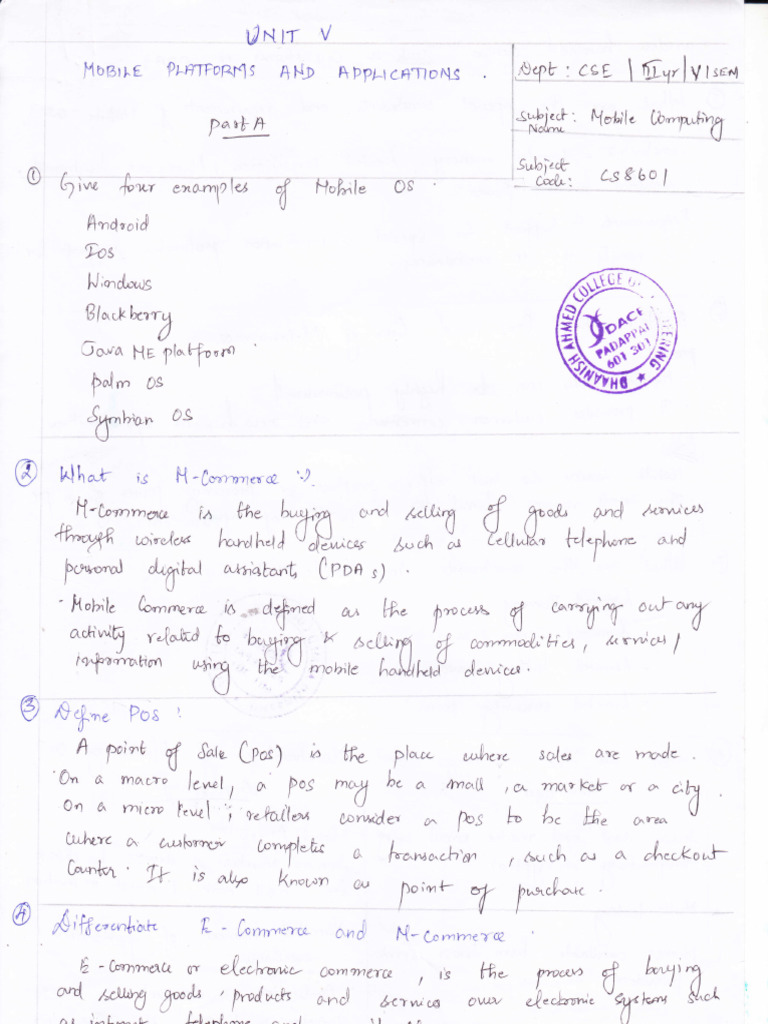 UNIT V
MOBILE PLATFORMS AND APPLICATIONS .
Dept : CSE / III yr / VI SEM
Subject Name : Mobile Computing
Subject Code: CS8601
Part A
① Give four examples of Mobile OS .
Android
IOS
Windows
Blackberry
Java ME platform .
Palm OS
Symbian OS
DHAANISH AHMED COLLEGE OF ENGINEERING
DACE
PADAPPAI
601 301
② What is M-Commerce ?
M-Commerce is the buying and selling of goods and services
through wireless handheld devices such as cellular telephone and
personal digital assistants (PDAs) .
· Mobile Commerce is defined as the process of carrying out any
activity related to buying & selling of commodities, services /
information using the mobile handheld devices.
③ Define POS :
A point of Sale (POS) is the place where sales are made .
On a macro level, a POS may be a mall, a market or a city .
On a micro level, retailers consider a POS to be the area
where a customer completes a transaction, such as a checkout
Counter. It is also known as point of purchase .
④ Differentiate E-Commerce and M-Commerce .
E-Commerce or electronic commerce, is the process of buying
and selling goods, products and services over electronic systems such
as internet, telephone and